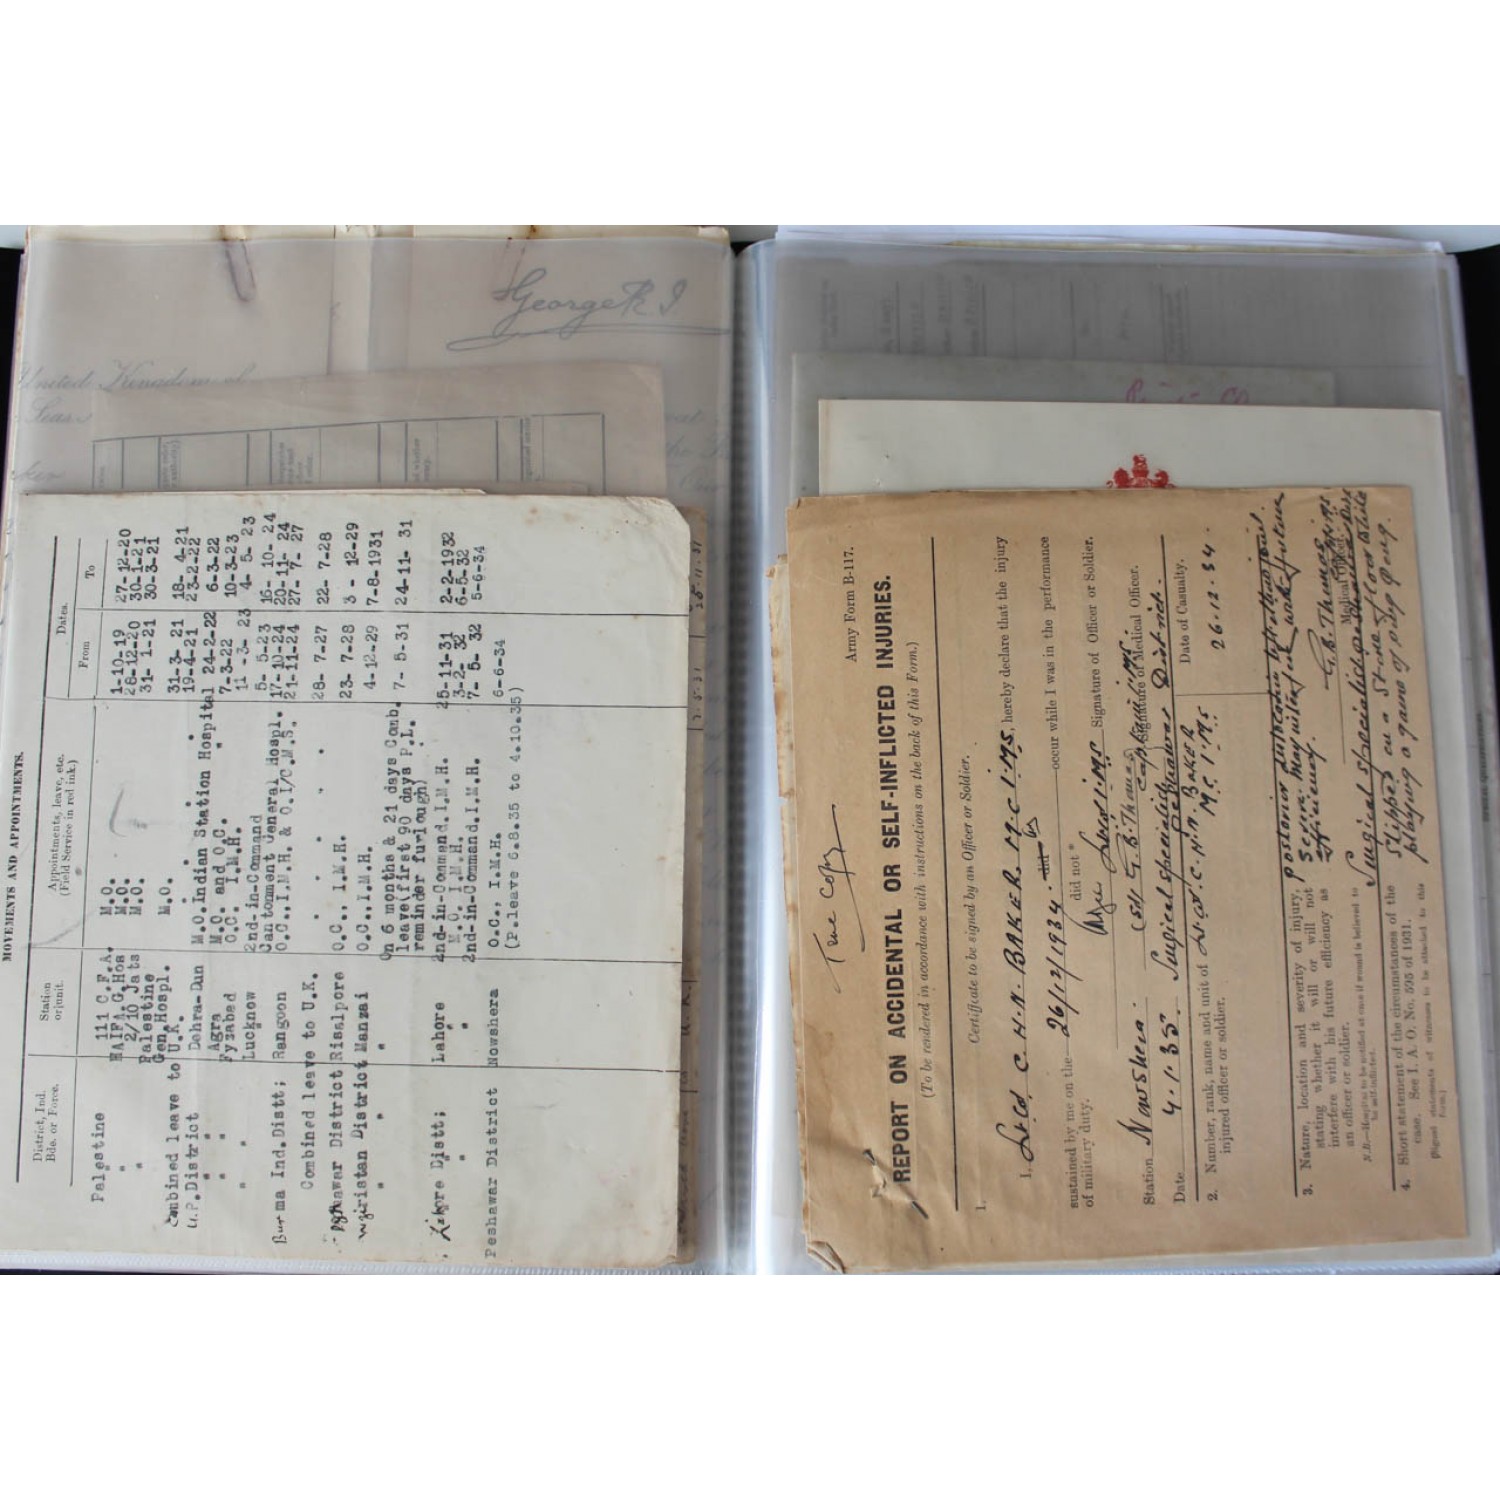 George R I
United Kingdom of
MOVEMENTS AND APPOINTMENTS.
District, Ind. Bde. or Force.
Station or unit.
Appointments, leave, etc. (Field Service in red ink.)
Dates.
From
To
Palestine 111 C.F.A. M.O. 1-10-19 27-12-20
" HAIFA.G.Hos M.O. 28-12-20 30-1-21
" 2/10 Jats M.O. 31- 1-21 30-3-21
Palestine
Gen.Hospl. M.O.
Combined leave to U.K. 31-3- 21 18- 4-21
U.P.District Dehra-Dun M.O.Indian Station Hospital 19-4-21 23-2-22
" Agra M.O. " " 24-2-22 6-3-22
" Fyzabad M.O. and O.C. 7-3-22 10-3-23
O.C. I.M.H.
" Lucknow 2nd-in-Command 11 -3- 23 4- 5- 23
Cantonment General Hospl. 5- 5-23 16- 10- 24
Burma Ind.Distt; Rangoon O.C.,I.M.H. & O.I/C.M.S. 17-10-24 20-11- 24
21-11-24 27- 7- 27
Combined leave to U.K. 28- 7-27 22- 7-28
Peshawar District Risalpore O.C., I.M.H. 23- 7-28 3 - 12-29
Waziristan District Manzai O.C.,I.M.H. 4-12-29 7-8-1931
" " " On 6 months & 21 days Comb. 7- 5-31 24-11- 31
leave(first 90 days P.L.
reminder furlough)
Lahore Distt; Lahore 2nd-in-Command.I.M.H. 25-11-31 2-2-1932
" " M.O. I.M.H. 3-2- 32 6-5-32
2nd-in-Command.I.M.H. 7- 5- 32 5-6-34
Peshawar District Nowshera O.C., I.M.H. 6-6-34
(P.leave 6.8.35 to 4.10.35)
True Copy
Army Form B-117.
REPORT ON ACCIDENTAL OR SELF-INFLICTED INJURIES.
(To be rendered in accordance with instructions on the back of this Form.)
Certificate to be signed by an Officer or Soldier.
1.
1. Lt Col C.H.N. BAKER M.C. I.M.S, hereby declare that the injury
sustained by me on the 26/12/1934. did did not * occur while I was in the performance
of military duty.
Signature of Officer or Soldier.
Station Nowshera. (Sd) G.B. Thomas Capt I.M.S Signature of Medical Officer.
Date 4.1.35. Surgical specialist Peshawar District.
2. Number, rank, name and unit of injured officer or soldier. Lt Col C.H.N. BAKER M.C. I.M.S
Date of Casualty. 26.12.34.
3. Nature, location and severity of injury, stating whether it will or will not interfere with his future efficiency as an officer or soldier.
Posterior dislocation
Severe. May interfere with future
efficiency.
G.B. Thomas
Medical Officer.
Surgical specialist
N.B.—Hospital to be notified at once if wound is believed to be self-inflicted.
4. Short statement of the circumstances of the case. See I. A. O. No. 595 of 1931.
(Signed statements of witnesses to be attached to this form.)
Slipped on a stone floor while
playing a game of ping pong.